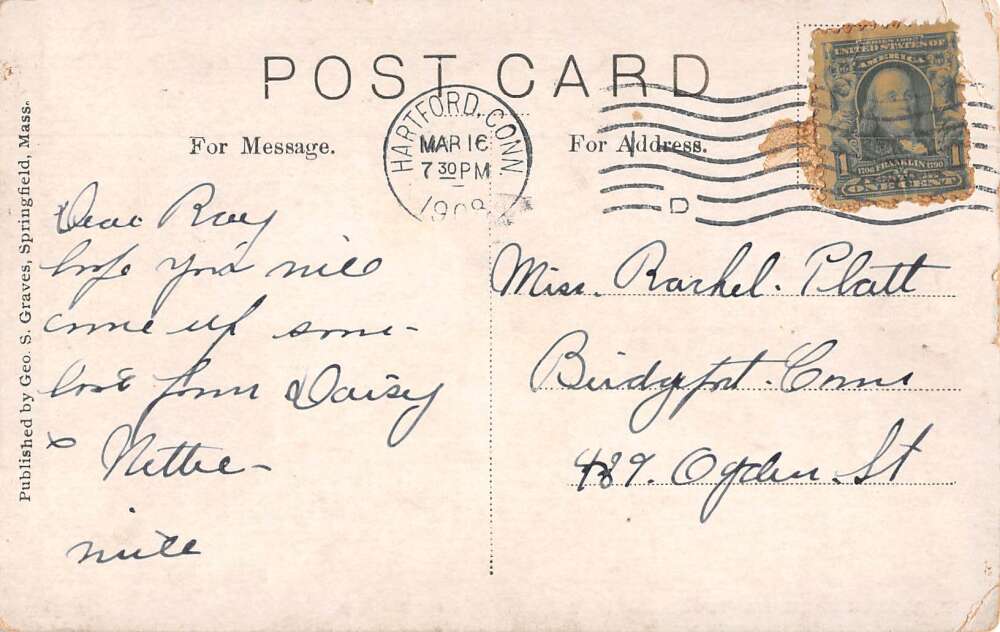 POST CARD
For Message.
For Address.
HARTFORD, CONN.
MAR 16
7 30 PM
1908
D
SERIES 1902
UNITED STATES OF
AMERICA
1706 FRANKLIN 1790
1 1
ONE CENT
Published by Geo. S. Graves, Springfield, Mass.
Dear Ray
hope you'r nice
come up some-
love from Daisy
& Nettie-
nice
Miss. Rachel. Platt
Bridgeport. Conn
489. Ogden. St